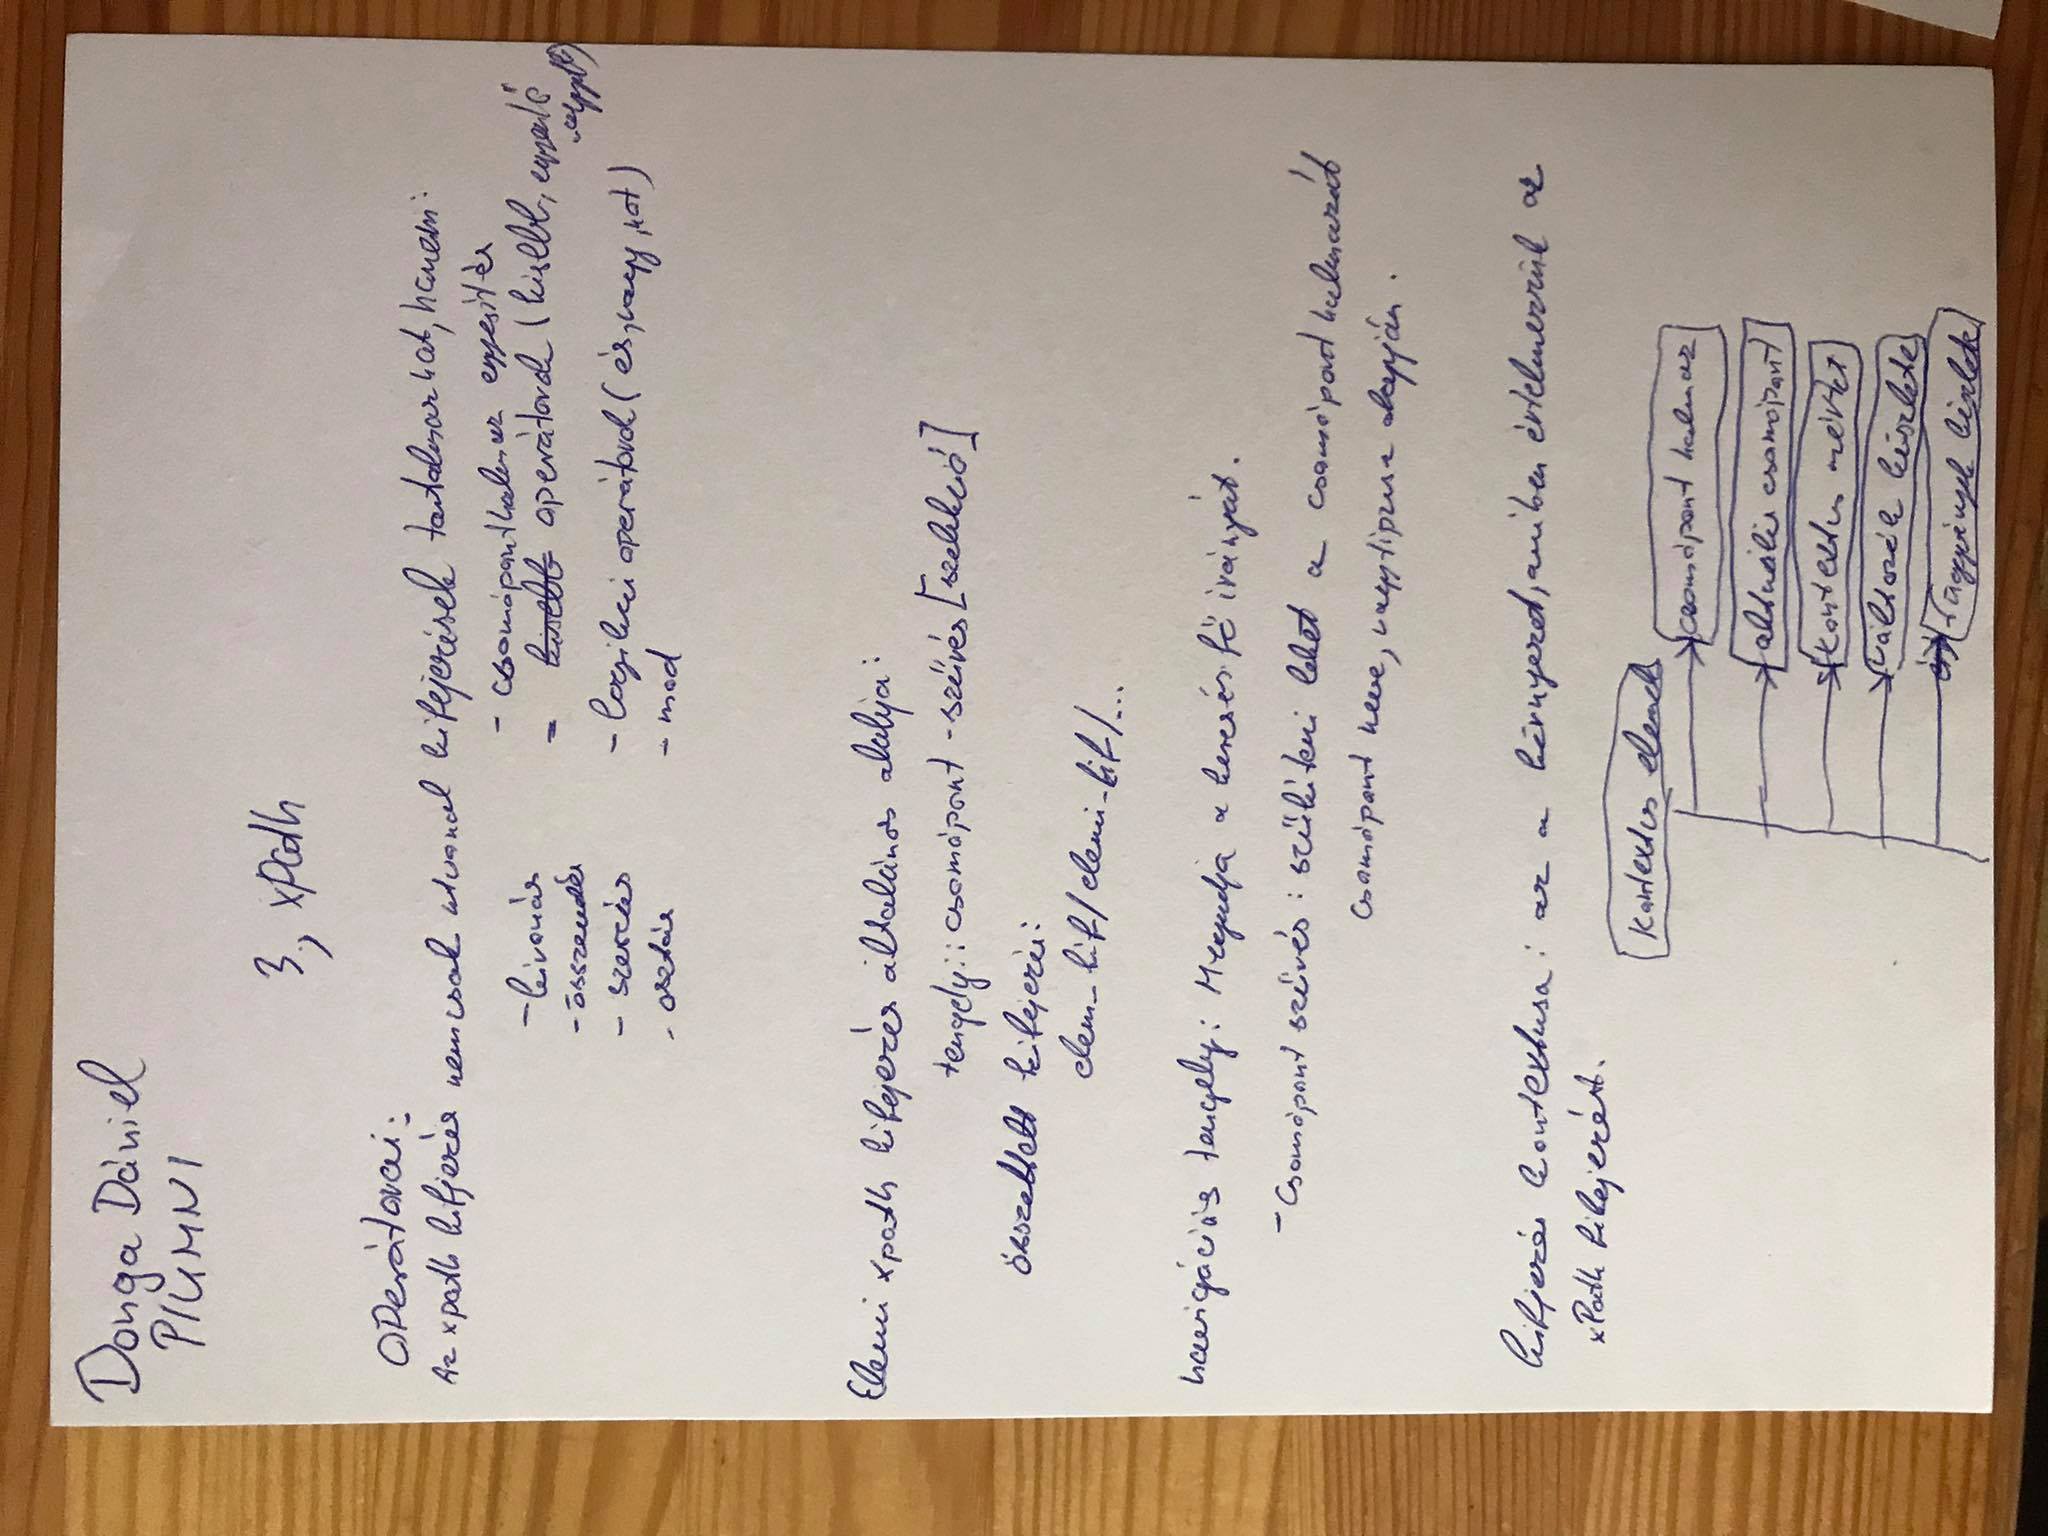 Donga Dániel
PIUMN1
3, xPath
OPerátorai:
Az xpath kifejezés nemcsak utvonal kifejezések tartalmazhat, hanem:
- kivonás
- összeadás
- szorzás
- osztás
- csomóponthalmaz egyesítés
- operátorok (kisebb, egyenlő
- logikai operátorok (és, vagy, not)
- mod
Elemi xpath kifejezés általános alakja:
tengely::csomópont-szűrés [szelekció]
összetett kifejezés:
elem_kif/elemi-kif/...
navigációs tengely: Megadja a keresés fő irányát.
- Csomópont szűrés: szűkíteni lehet a csomópont halmazát
csomópont neve, vagy tipusa alapján.
kifejezés kontextusa: az a környezet, amiben értelmezzük az
xPath kifejezést.
Kontextus elemek
csomópont halmaz
aktuális csomópont
kontextus méret
változók készlete
függvények készlete